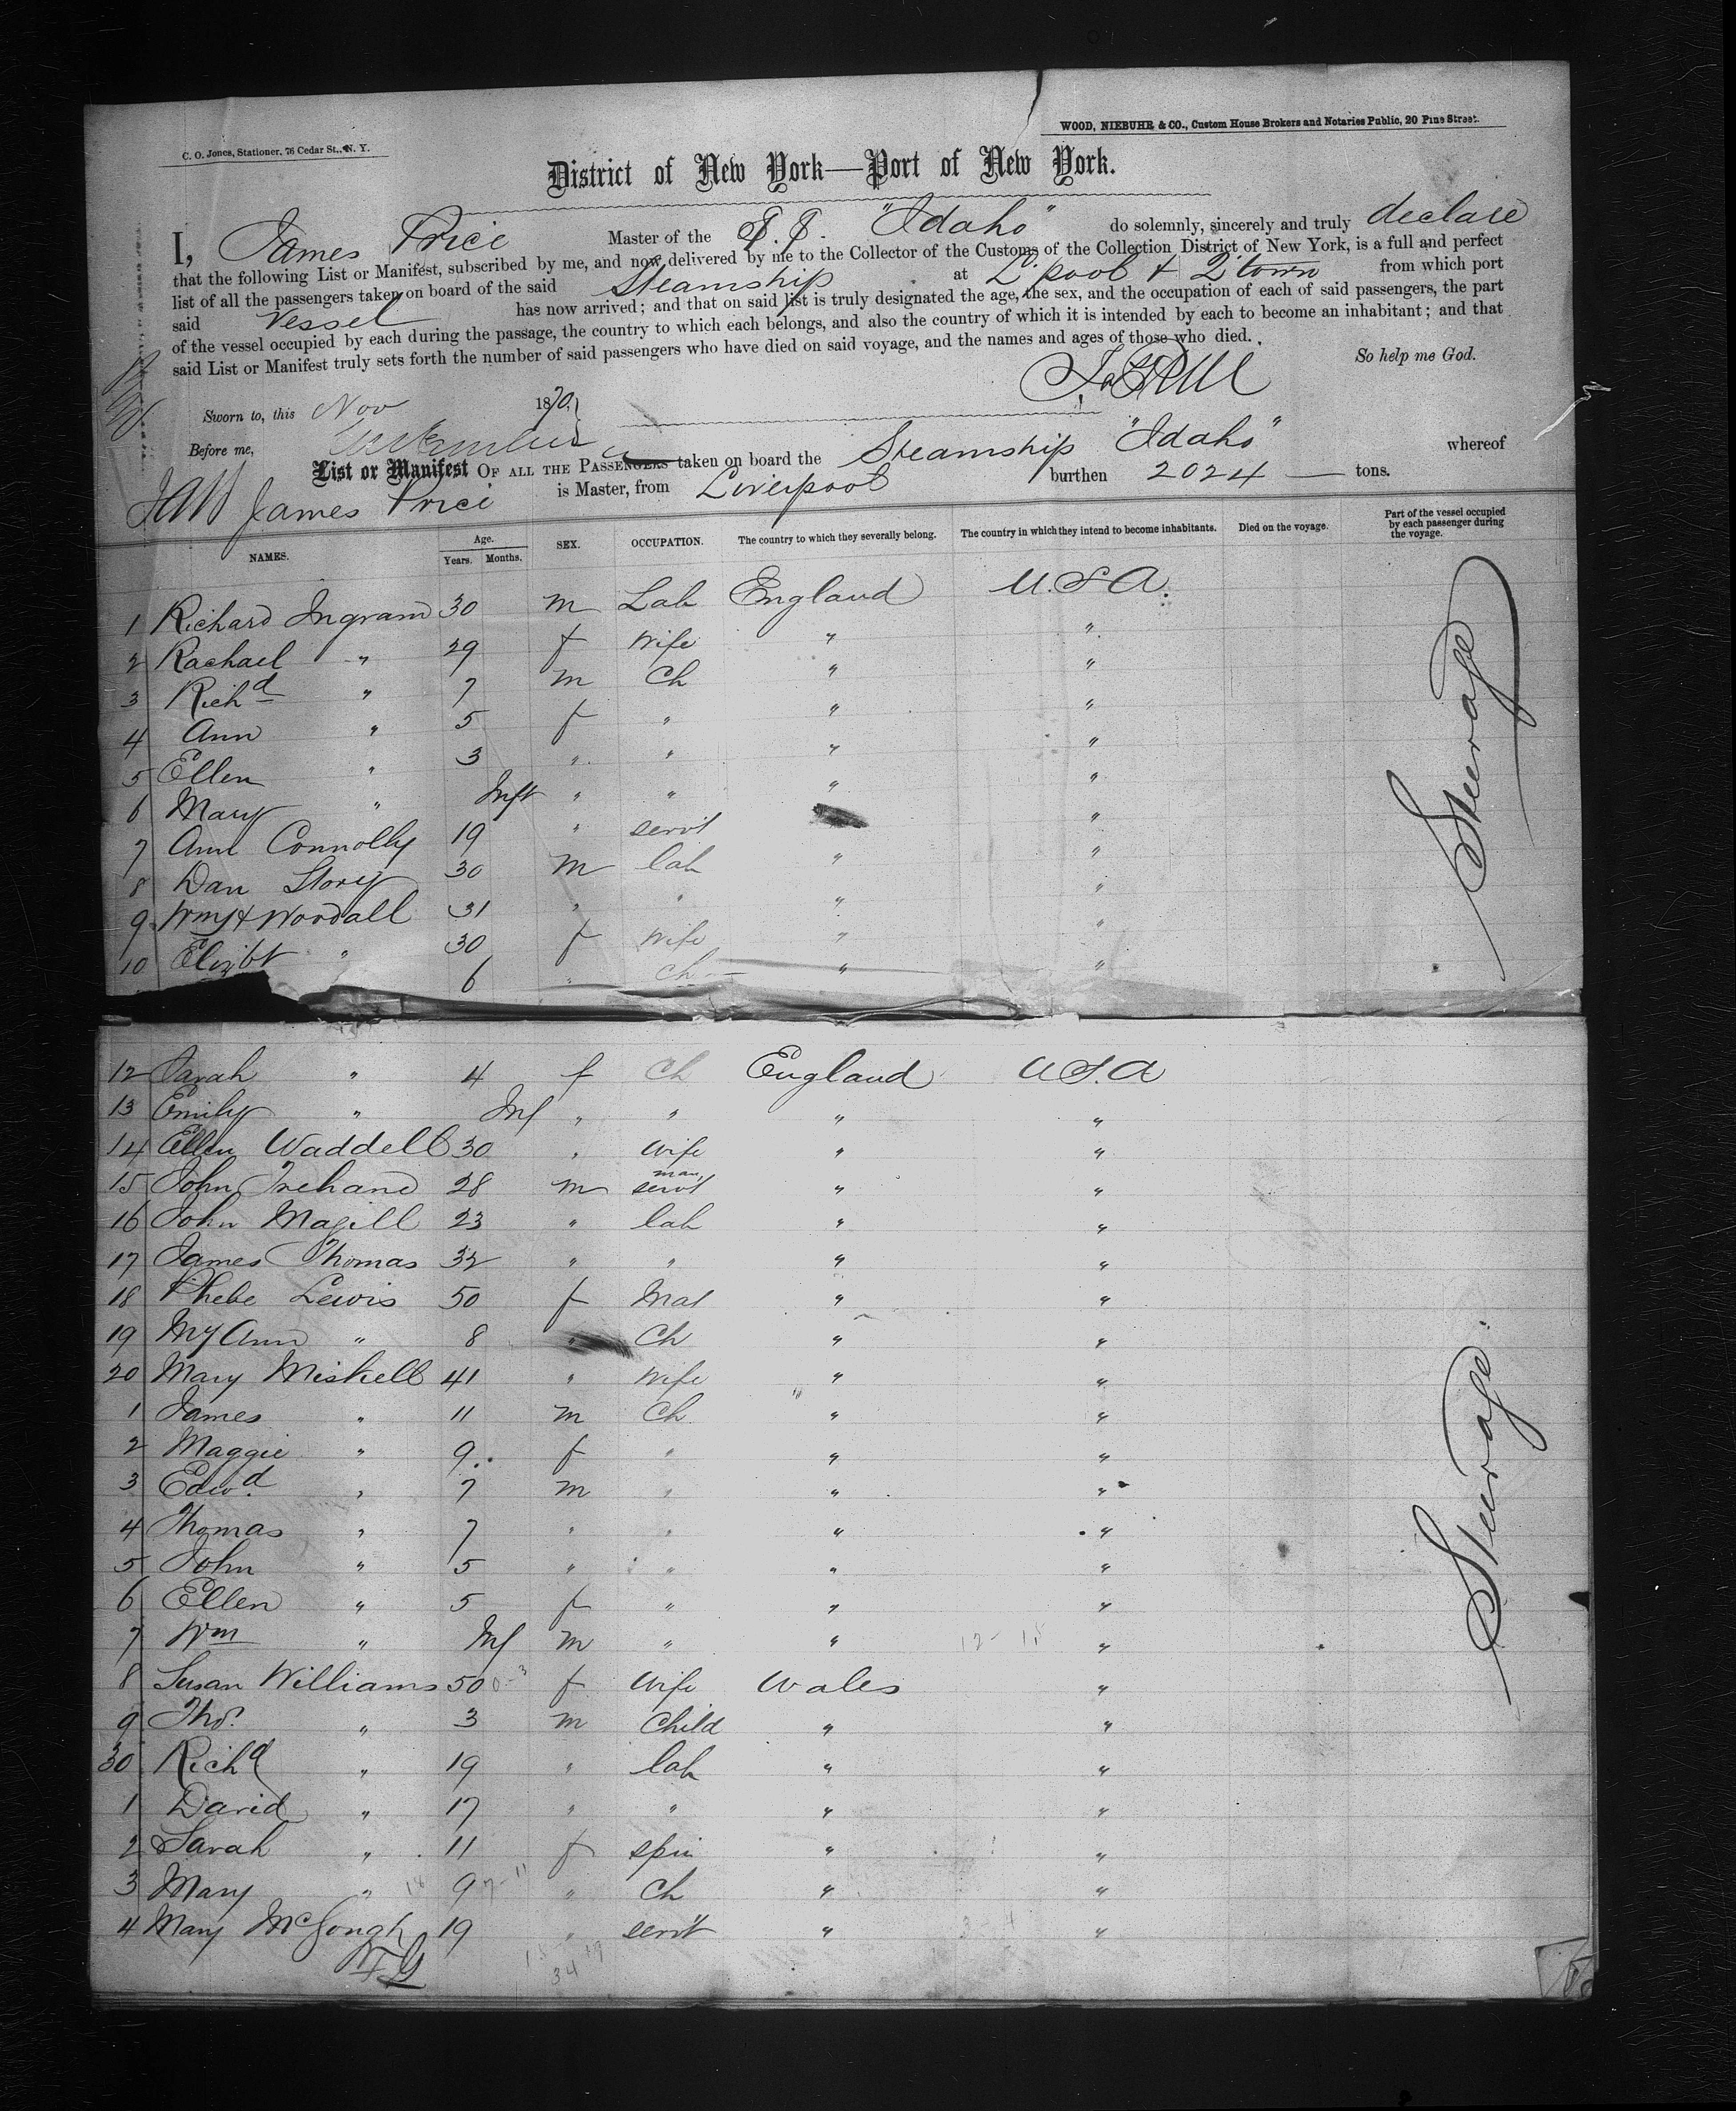 WOOD, NIEBUHR & CO., Custom House Brokers and Notaries Public, 20 Pine Street.
C. O. Jones, Stationer, 76 Cedar St., N. Y.
District of New York—Port of New York.
I, James Price Master of the S.S. "Idaho" do solemnly, sincerely and truly declare
that the following List or Manifest, subscribed by me, and now delivered by me to the Collector of the Customs of the Collection District of New York, is a full and perfect
list of all the passengers taken on board of the said Steamship at L'pool & Q'town from which port
said Vessel has now arrived; and that on said list is truly designated the age, the sex, and the occupation of each of said passengers, the part
of the vessel occupied by each during the passage, the country to which each belongs, and also the country of which it is intended by each to become an inhabitant; and that
said List or Manifest truly sets forth the number of said passengers who have died on said voyage, and the names and ages of those who died.
So help me God.
Sworn to, this Nov 1870,
Before me,
List or Manifest OF ALL THE PASSENGERS taken on board the Steamship "Idaho" whereof
James Price is Master, from Liverpool burthen 2024 tons.
NAMES. Age. Years. Months. SEX. OCCUPATION. The country to which they severally belong. The country in which they intend to become inhabitants. Died on the voyage. Part of the vessel occupied by each passenger during the voyage.
1 Richard Ingram 30 m Lab England U.S.A.
2 Rachael " 29 f Wife " "
3 Richd " 7 m Ch " "
4 Ann " 5 f " " "
5 Ellen " 3 " " " "
6 Mary " Inft " " " "
7 Ann Connolly 19 " servt "
8 Dan Story 30 m lab " "
9 Wm H Wordall 31 " " " "
10 Elizbt " 30 f Wife " "
6 " Ch " "
Steerage
12 Sarah " 4 f Ch England U.S.A
13 Emily " Inf " " " "
14 Ellen Waddell 30 " Wife " "
15 John Trehane 28 m man servt " "
16 John Magill 23 " lab " "
17 James Thomas 32 " " " "
18 Phebe Lewis 50 f Mat " "
19 My Ann " 8 " Ch " "
20 Mary Miskell 41 " Wife " "
1 James " 11 m Ch " "
2 Maggie " 9 f " " "
3 Edwd " 7 m " " "
4 Thomas " 7 " " " "
5 John " 5 " " " "
6 Ellen " 5 f " " "
7 Wm " Inf m " " "
8 Susan Williams 50 f Wife Wales "
9 Thos. " 3 m Child " "
30 Richd " 19 " lab " "
1 David " 17 " " " "
2 Sarah " 11 f spin " "
3 Mary " 9 " Ch " "
4 Mary McGongh 19 " servt " "
Steerage
34